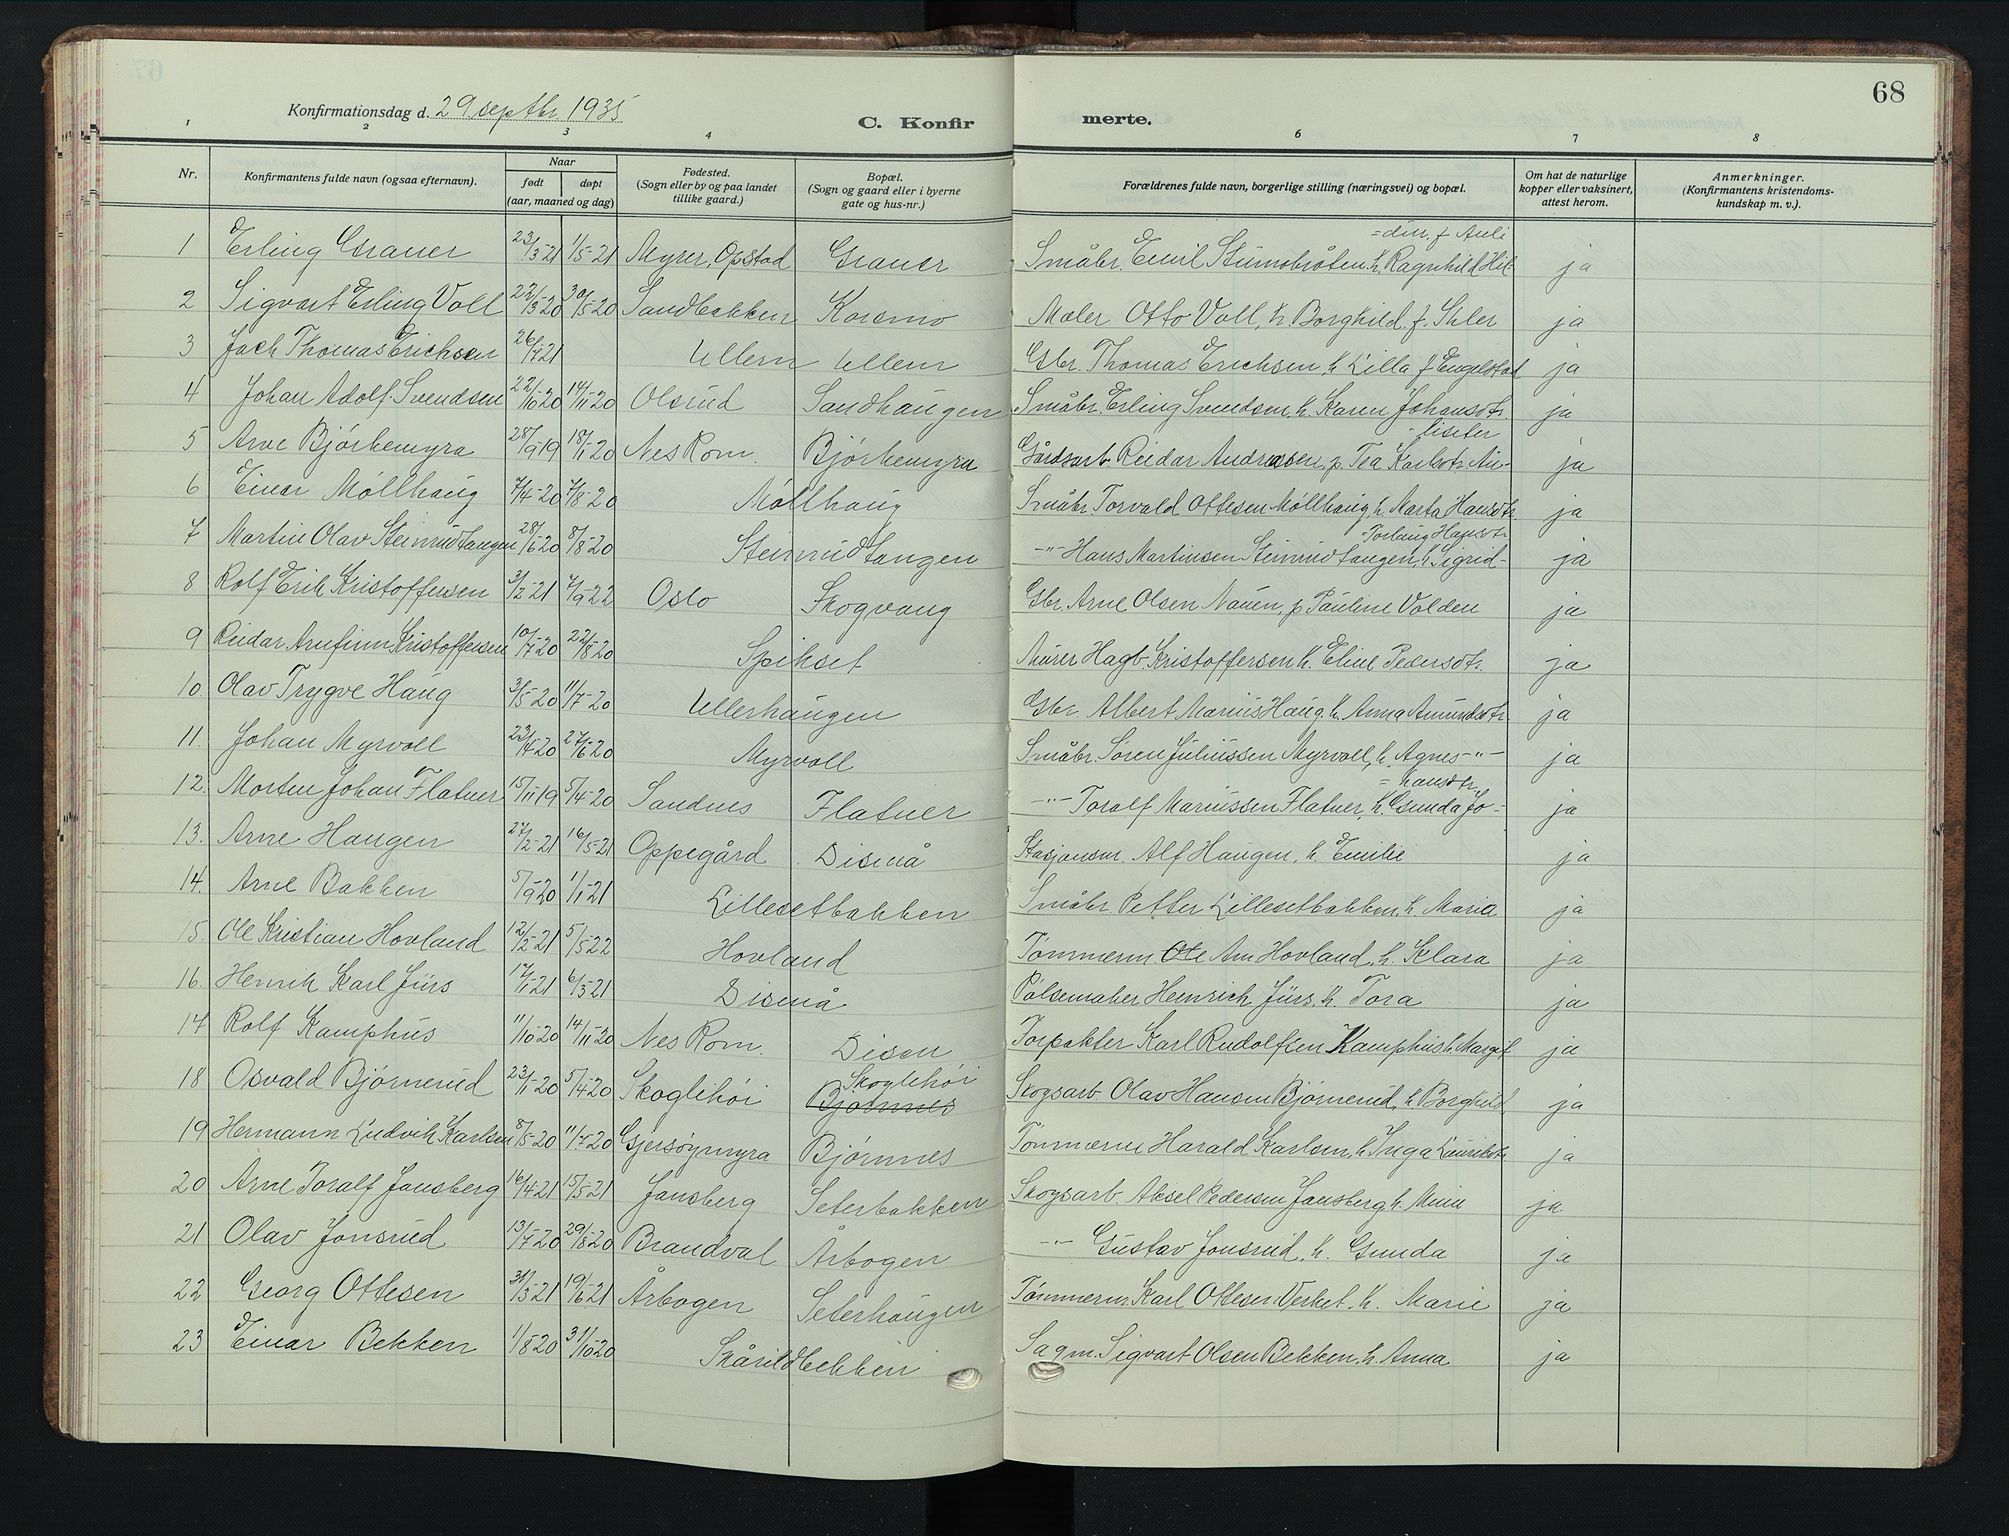 68
Konfirmationsdag d. 29 septbr. 1935
C. Konfirmerte.
1 2 3 4 6 7 8
Nr. Konfirmantens fulde navn (ogsaa efternavn). Naar født døpt (aar, maaned og dag) Fødested. (Sogn eller by og paa landet tillike gaard.) Bopæl. (Sogn og gaard eller i byerne gate og hus-nr.) Forældrenes fulde navn, borgerlige stilling (næringsvei) og bopæl. Om hat de naturlige kopper eller vaksinert, attest herom. Anmerkninger. (Konfirmantens kristendomskundskap m. v.).
= dur, f. Auli
1 Erling Graner 23/3-21 1/5-21 Myrer, Opstad Graner Småbr. Emil h. Ragnhild Hil- ja
2 Sigvart Erling Voll 22/3-20 30/5-20 Sandbakken Korsmo Maler Otto Voll, h. Borghild f. ja
3 Jack Thomas Erichsen 26/7-21 Ullern Ullern Gbr. Thomas Erichsen h. Lilla f. Engelstad ja
4 Johan Adolf Svendsen 22/10-20 14/11-20 Olsrud Sandhaugen Småbr. Erling Svendsen, h. Karen Johansdtr. ja
- liseter
5 Arve Bjørkemyra 28/9-19 18/1-20 Nes Rom. Bjørkemyra Gårdsarb. Reidar Andreasen, p. Tea Karlsdtr. ja
6 Einar Møllhaug 7/4-20 7/8-20 Møllhaug Småbr. Torvald Ottesen Møllhaug, h. Marta Hansdtr. ja
- Torlaug Hansdtr.
7 Martin Olav Steinrudtangen 28/6-20 8/8-20 Steinrudtangen -"- Hans Martinsen Steinrudtangen, h. Sigrid- ja
8 Rolf Erik Kristoffersen 3/2-21 7/9-22 Oslo Skogvang Gbr. Arne Olsen Nauen, p. Pauline Volden ja
9 Reidar Arnfinn Kristoffersen 10/7-20 22/8-20 Spikset Murer Hagb. Kristoffersen h. Eline Pedersdtr. ja
10. Olav Trygve Haug 3/5-20 11/7-20 Ullerhaugen Gbr. Albert Marius Haug, h. Anna Amundsdtr. ja
11. Johan Myrvoll 23/4-20 27/6-20 Myrvoll Småbr. Søren Juliussen Myrvoll, h. Agnes -"- ja
= hansdtr.
12. Morten Johan Flatner 15/11-19 5/4-20 Sandnes Flatner -"- Toralf Mariussen Flatner, h. Gunda Jo- ja
13. Arne Haugen 27/2-21 16/5-21 Oppegård Disenå Stasjonsm. Alf Haugen, h. Emilie ja
14. Arne Bakken 5/9-20 1/1-21 Lillesetbakken Småbr. Petter Lillesetbakken, h. Maria ja
15. Ole Kristian Hovland 12/2-21 5/5-22 Hovland Tømmerm. Ole Am Hovland, h. Klara ja
16. Henrik Karl Jürs 17/1-21 6/3-21 Disenå Pølsemaker Heinrich Jürs, h. Tora ja
17 Rolf Kamphus 11/10-20 14/11-20 Nes Rom. Disen Forpakter Karl Rudolfsen Kamphus h. Margit ja
18 Osvald Bjørnerud 23/1-20 5/4-20 Skoglihøi Skoglihøi Bjørnnes Skogsarb. Olav Hansen Bjørnerud, h. Borghild ja
19 Hermann Ludvik Karlsen 8/5-20 11/7-20 Gjersøymyra Bjørnnes Tømmerm Harald Karlsen, h. Inga Lauritsdtr. ja
20 Arne Toralf Jansberg 16/4-21 15/5-21 Jansberg Seterbakken Skogsarb. Aksel Pedersen Jansberg h. Mina ja
21 Olav Jonsrud 13/7-20 29/8-20 Brandval Årbogen -"- Gustav Jonsrud, h. Gunda ja
22 Georg Ottesen 31/3-21 19/6-21 Årbogen Seterhaugen Tømmerm. Karl Ottesen Verket, h. Marie ja
23 Einar Bekken 1/8-20 31/10-20 Skårildbekken Sagm. Sigvart Olsen Bekken, h. Anna ja